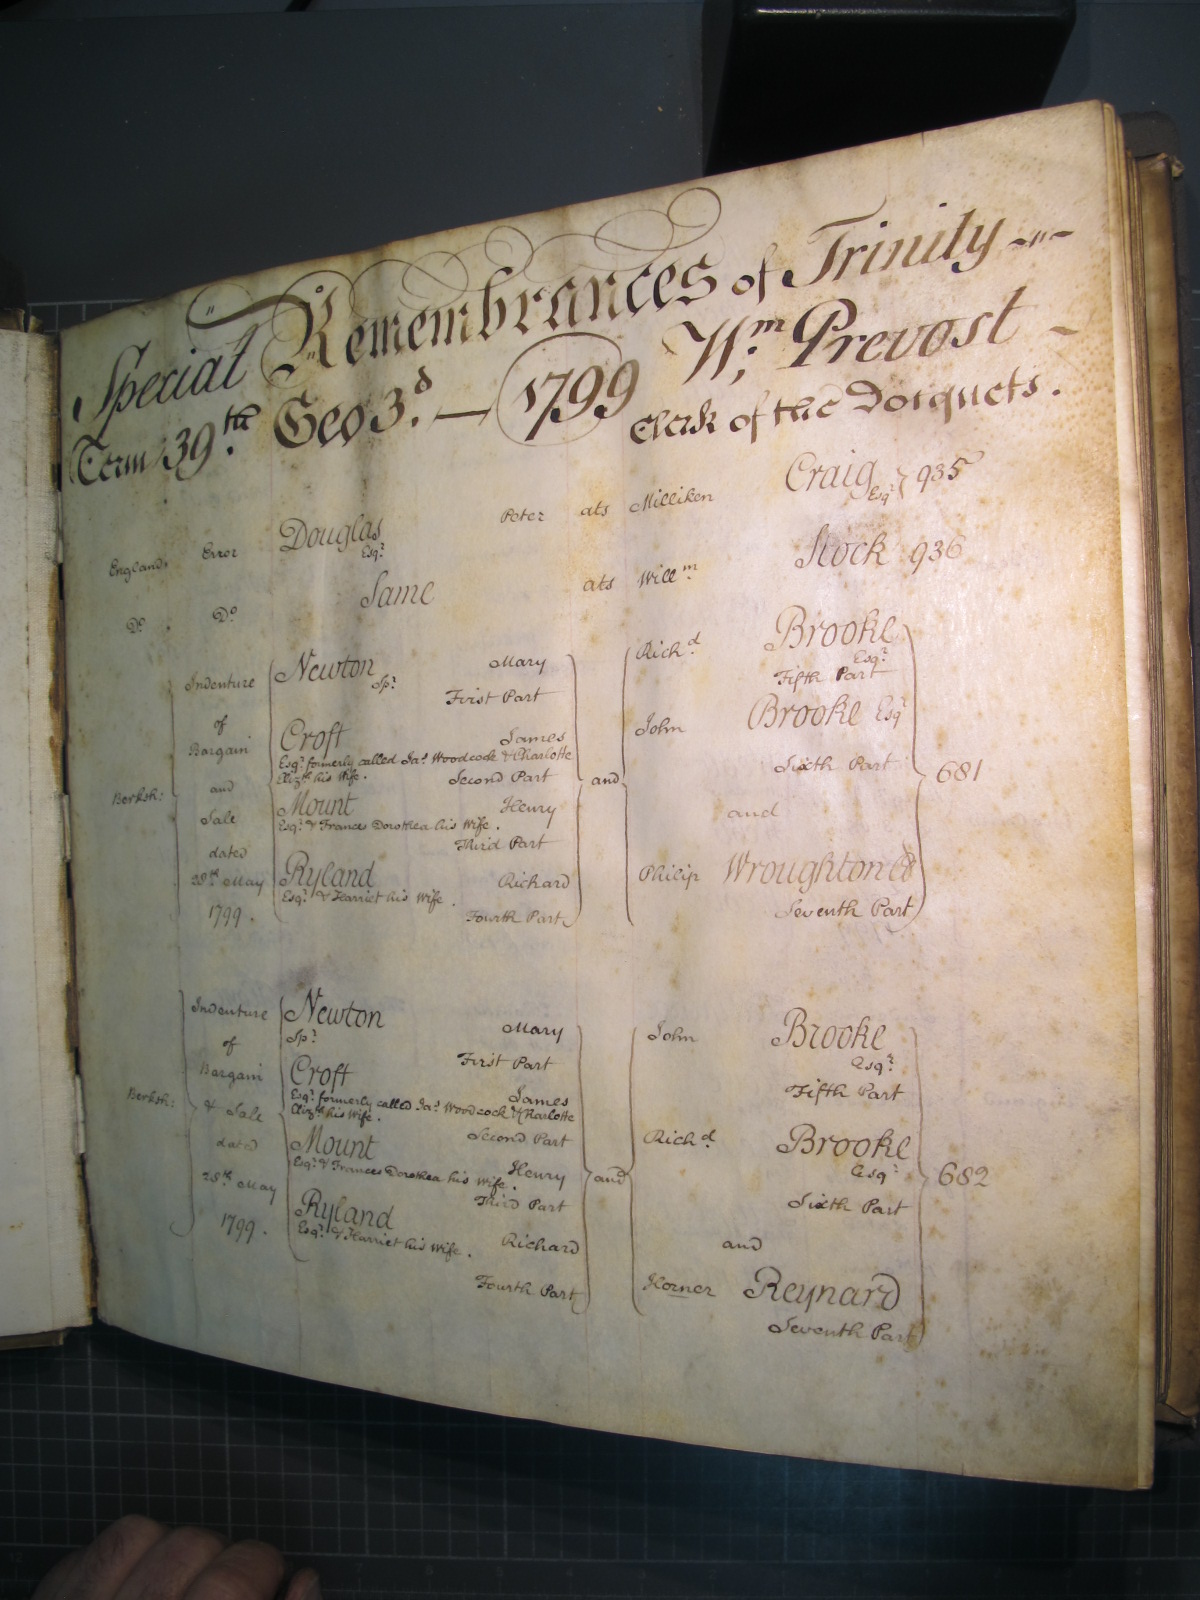 Special Remembrances of Trinity
Term 39th Geo 3d. — 1799 Wm: Prevost
Clerk of the Docquets.
England Error Douglas Esqr. Peter ats Milliken Craig Esqr. 935
Do. Do. Same ats Willm Stock 936
Berksh: Indenture of Bargain and Sale dated 28th May 1799.
Newton Spr. Mary
First Part
Croft James
Esqr. formerly called Jas. Woodcock & Charlotte
Elizth his Wife. Second Part
Mount Henry
Esqr. & Frances Dorothea his Wife.
Third Part
Ryland Richard
Esqr. & Harriet his Wife.
Fourth Part
and
Richd Brooke
Esqr.
Fifth Part
John Brooke Esqr
Sixth Part
and
Philip Wroughton
Seventh Part
681
Berksh: Indenture of Bargain & Sale dated 28th May 1799.
Newton Mary
Spr.
First Part
Croft James
Esqr. formerly called Jas. Woodcock & Charlotte
Elizth his Wife.
Second Part
Mount Henry
Esqr. & Frances Dorothea his Wife.
Third Part
Ryland Richard
Esqr. & Harriet his Wife.
Fourth Part
and
John Brooke
Esqr.
Fifth Part
Richd. Brooke
Esqr
Sixth Part
and
Horner Reynard
Seventh Part
682